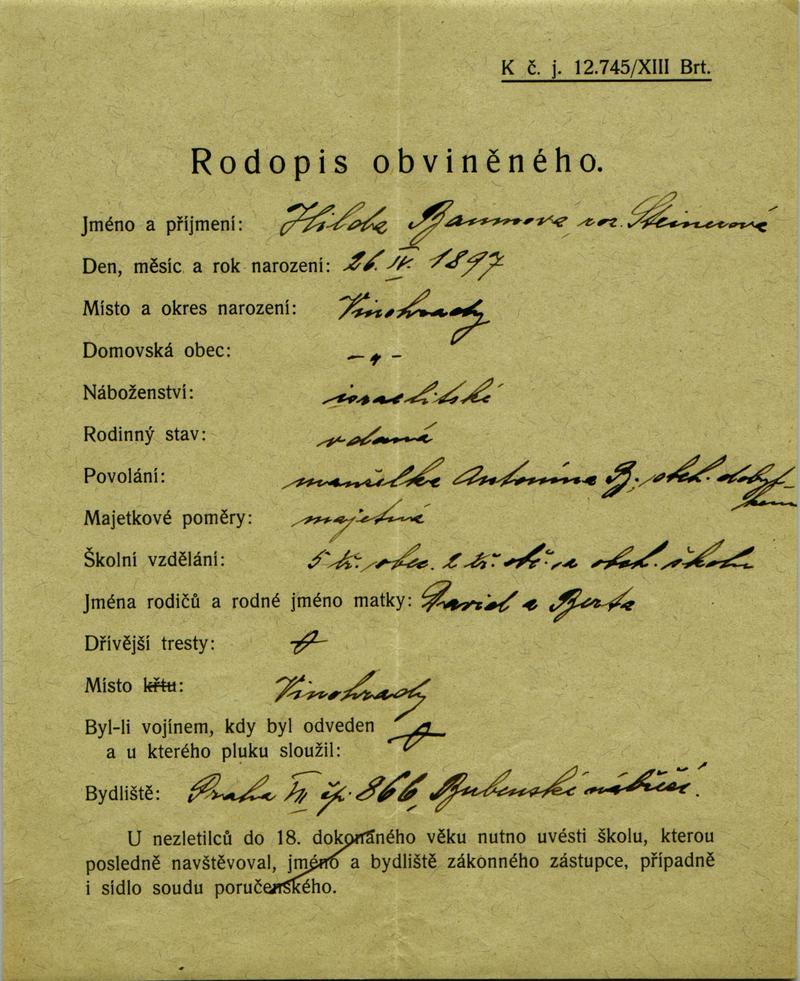 K č. j. 12.745/XIII Brt.
Rodopis obviněného.
Jméno a příjmení: Hilda Baumova, roz. Steinerová
Den, měsíc a rok narození: 26. IV. 1897
Místo a okres narození: Vinohrady
Domovská obec: – „ –
Náboženství: israelitské
Rodinný stav: vdaná
Povolání: manželka Antonína B., obch. dobyt-
kem
Majetkové poměry: majetná
Školní vzdělání: 5 tř. obec. 2 tř. obč. a obch. škola
Jména rodičů a rodné jméno matky: David a Berta
Dřívější tresty: 0
Místo křtu: Vinohrady
Byl-li vojínem, kdy byl odveden 0
a u kterého pluku sloužil:
Bydliště: Praha VII čp. 866, Bubenské nábřeží.
U nezletilců do 18. dokonaného věku nutno uvésti školu, kterou
posledně navštěvoval, jméno a bydliště zákonného zástupce, případně
i sídlo soudu poručenského.